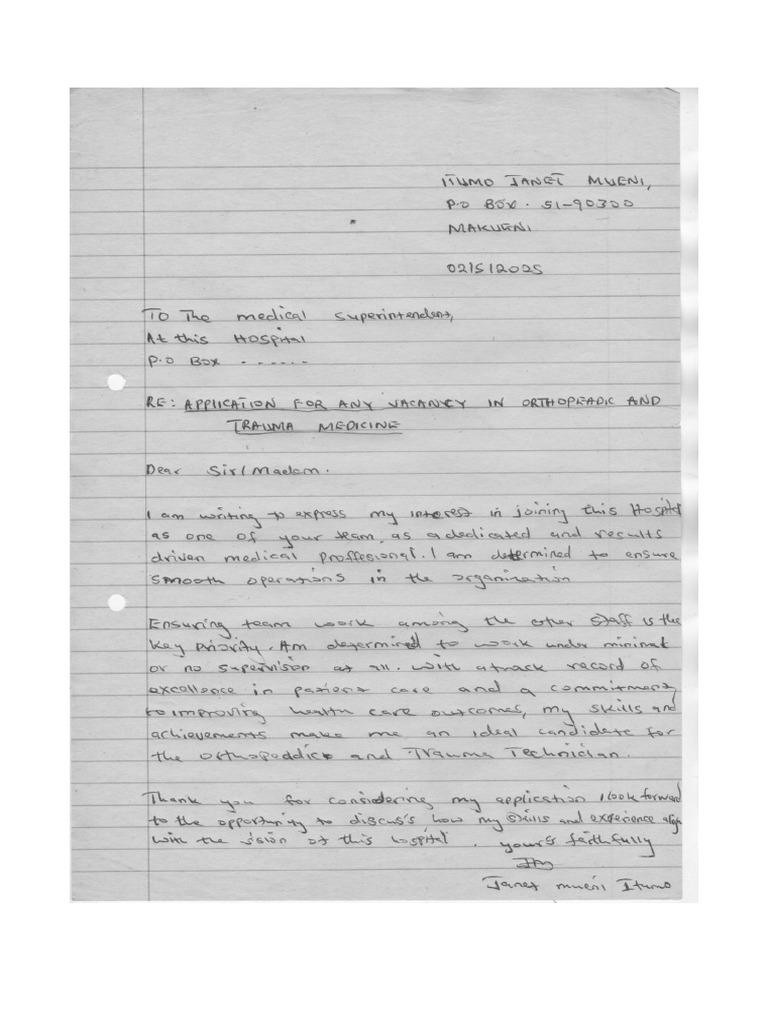 ITUMO JANET MUENI,
P.O BOX. 51-90300
MAKUENI
02/5/2025
TO The medical superintendent,
At this HOSPITAL
P.O BOX ......
RE: APPLICATION FOR ANY VACANCY IN ORTHOPEADIC AND
TRAUMA MEDICINE
Dear Sir/Madam.
I am writing to express my interest in joining this Hospital
as one of your team, as a dedicated and results
driven medical proffesional. I am determined to ensure
smooth operations in the organization
Ensuring team work among the other staff is the
key priority. Am determined to work under minimal
or no supervision at all. with a track record of
excellence in patient care and a commitment
to improving health care outcomes, my skills and
achievements make me an ideal candidate for
the Orthopeddics and Trauma Technician.
Thank you for considering my application I look forward
to the opportunity to discuss how my skills and experience align
with the vision of this hospital. yours faithfully
Janet mueni Itumo